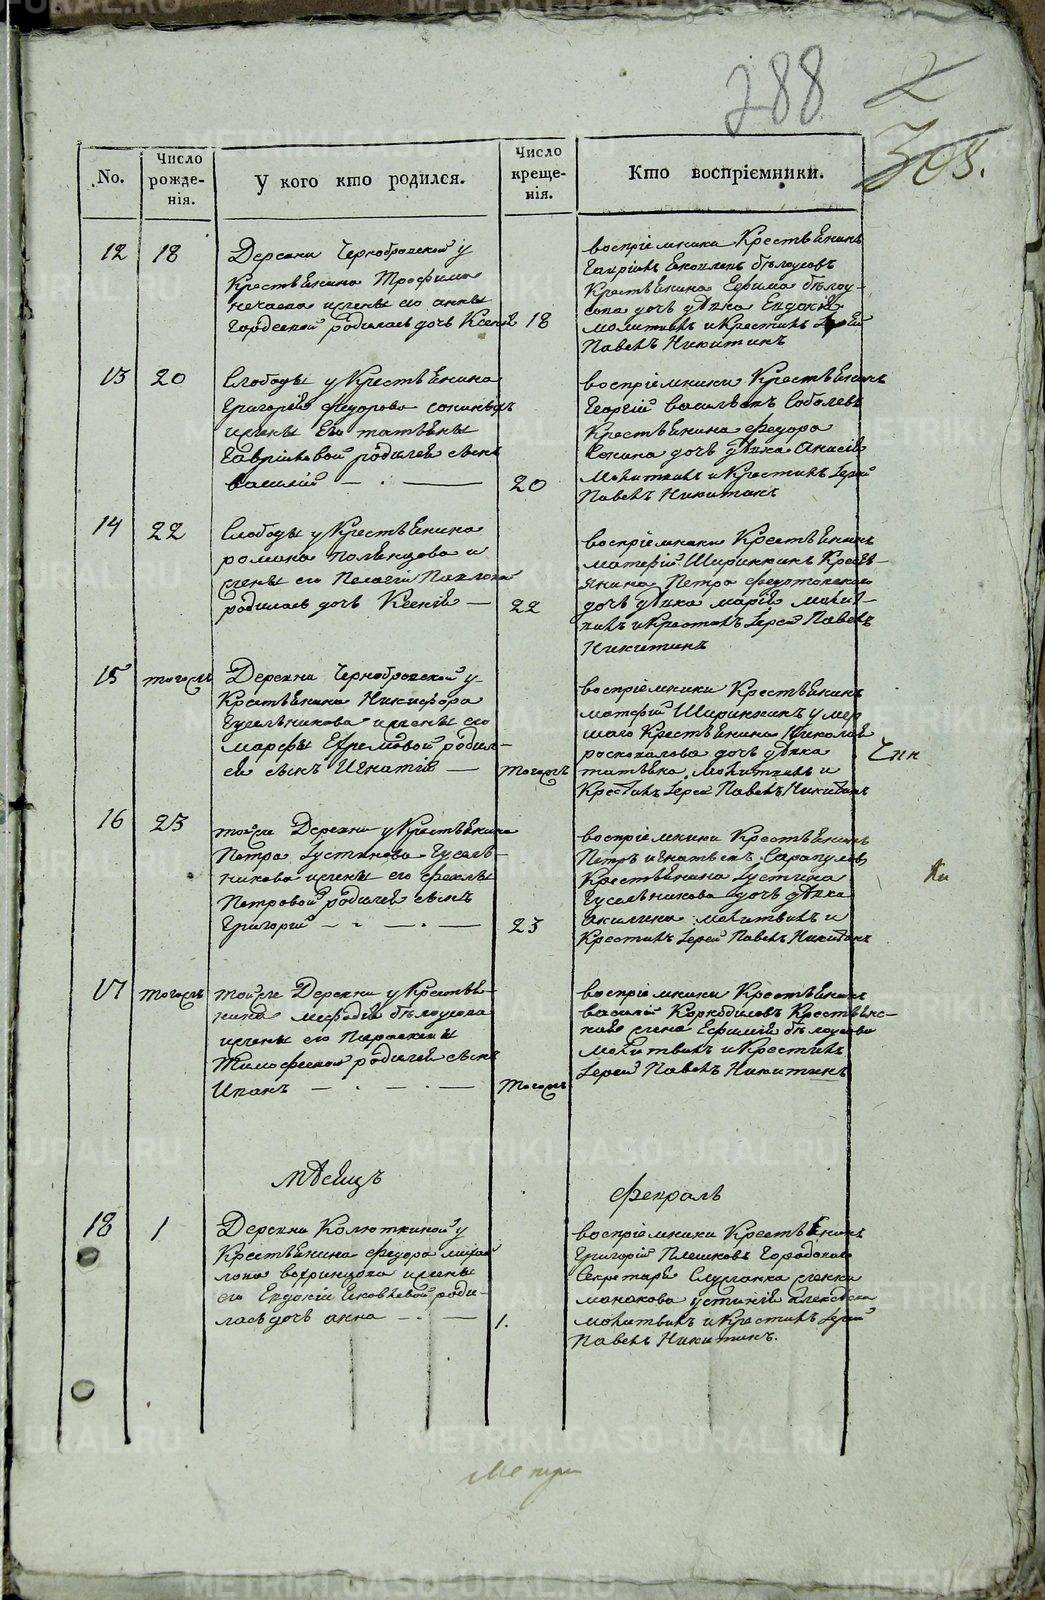 288
2
308.
No.
Число рожде-нія.
У кого кто родился.
Число креще-нія.
Кто воспріемники.
12
18
Деревни Чернобровской у
Крестьянина Трофима
нечаева и жены его анны
Гордеевой родилась дочь Ксенія
18
воспріемники Крестьянинъ
Гаврилъ белоусовъ
Крестьянина Ефима белоу-
сова дочь девка Евдокія
молитвилъ и Крестилъ Іерей
Павелъ Никитинъ
13
20
Слободы у Крестьянина
Григорія федорова
и жены Его татьяны
Гавриловой родился сынъ
Василій
20
воспріемники Крестьянинъ
Георгій васильевъ Соболевъ
Крестьянина федора
дочь девка
Молитвилъ и Крестилъ Іерей
Павелъ Никитинъ
14
22
Слободы у Крестьянина
романа и
жены его Пелагіи Павловой
родилась дочь Ксенія
22
воспріемники Крестьянинъ
матфій Ширинкинъ Кресть-
янина Петра
дочь девка марія молит-
вилъ и Крестилъ Іерей Павелъ
Никитинъ
15
тогожъ
Деревни Чернобровской у
Крестьянина Никифора
Гусельникова и жены его
марфы Ефимовой родил-
ся сынъ Игнатій
тогожъ
воспріемники Крестьянинъ
матфій Ширинкинъ умер
шаго Крестьянина Николая
дочь девка
татьяна молитвилъ и
Крестилъ Іерей Павелъ Никитинъ
16
23
тойже Деревни у Крестьянина
Петра Іустинова Гусель-
никова и жены его феклы
Петровой родился сынъ
Григорій
23
воспріемники Крестьянинъ
Петръ игнатьевъ Сарапуловъ
Крестьянина Іустина
Гусельникова дочь девка
акилина молитвилъ и
Крестилъ Іерей Павелъ Никитинъ
17
тогожъ
тойже Деревни у Крестья-
нина мефодія белоусова
и жены его Параскевы
Тимофеевой родился сынъ
Иванъ
тогожъ
воспріемники Крестьянинъ
василій Коркодиновъ Крестьянс-
кая жена Ефимія белоусова
молитвилъ и Крестилъ
Іерей Павелъ Никитинъ
месяцъ
февраль
18
1
Деревни Колюткиной у
Крестьянина федора михай
лова и жены
его Евдокіи Яковлевой роди-
лась дочь анна
1.
воспріемники Крестьянинъ
Григорій Плешковъ Городоваго
Секретаря женка
устинія алексеева
молитвилъ и Крестилъ Іерей
Павелъ Никитинъ.
METRIKI.GASO-URAL.RU